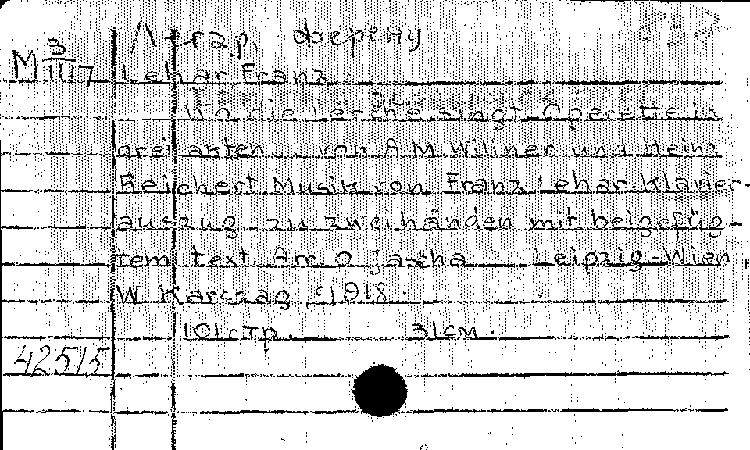 Легар, Ференц
M 3/III17
Lehar Franz
Wo die Lerche singt Operette in
drei akten von A M Willner und Heinz
Reichert Musik von Franz Lehar Klavier-
auszug zu zwei händen mit beigefüg-
tem text Arr O Leipzig-Wien,
W Karczag c1918.
101стр. 31см.
42515